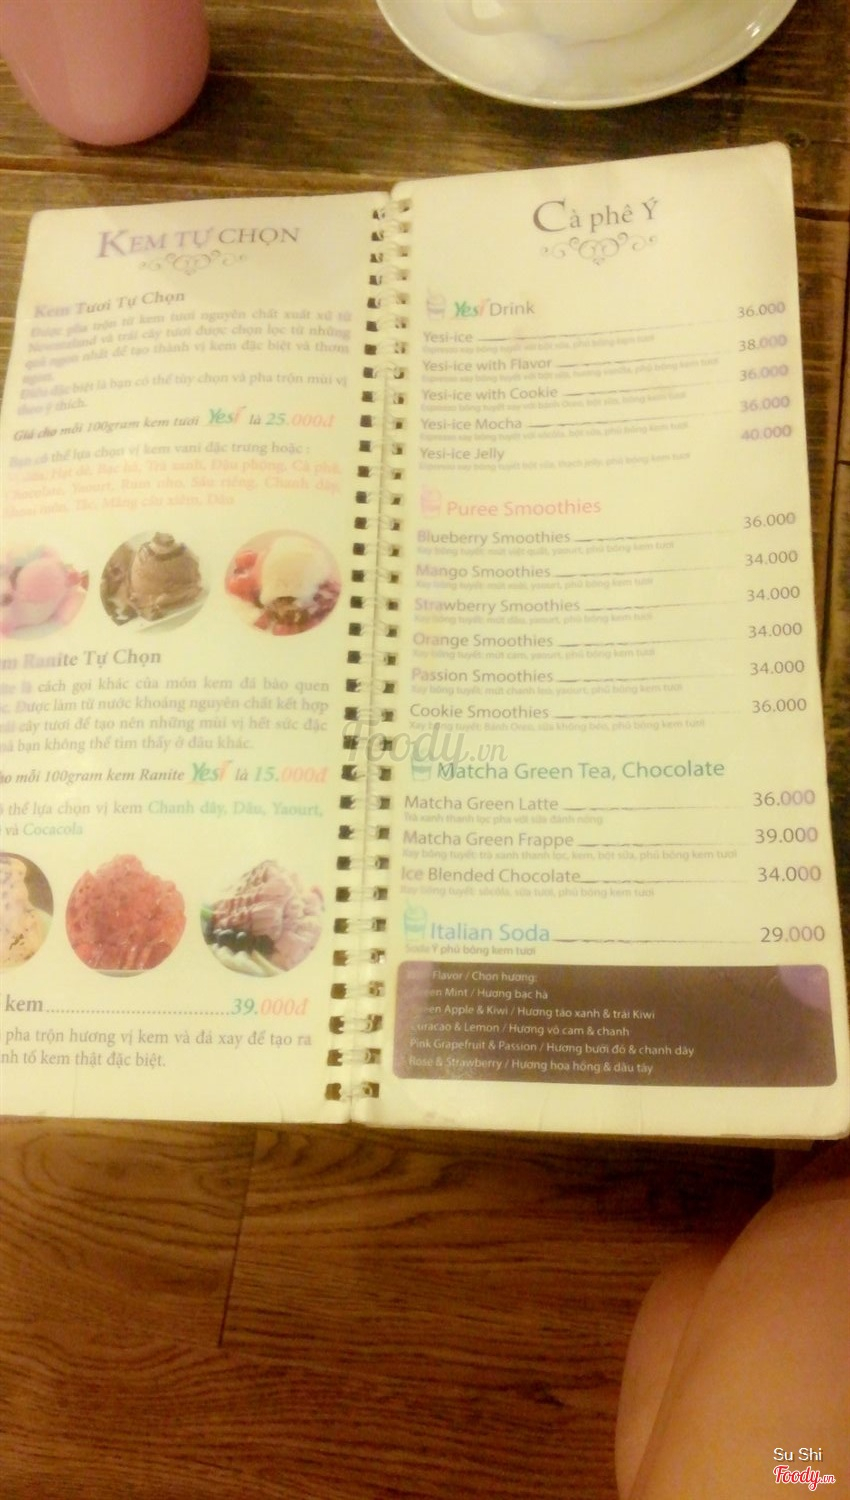 KEM TỰ CHỌN
Kem Tươi Tự Chọn
Được pha trộn từ kem tươi nguyên chất xuất xứ từ
Newzealand và trái cây tươi được chọn lọc từ những
quả ngon nhất để tạo thành vị kem đặc biệt và thơm
ngon.
Điều đặc biệt là bạn có thể tùy chọn và pha trộn mùi vị
theo ý thích.
Giá cho mỗi 100gram kem tươi Yesi là 25.000đ
Bạn có thể lựa chọn vị kem vani đặc trưng hoặc :
Vị dừa, Hạt dẻ, Bạc hà, Trà xanh, Đậu phộng, Cà phê,
Chocolate, Yaourt, Rum nho, Sầu riêng, Chanh dây,
Mãng cầu xiêm, Dâu
m Ranite Tự Chọn
là cách gọi khác của món kem đá bào quen
Được làm từ nước khoáng nguyên chất kết hợp
cây tươi để tạo nên những mùi vị hết sức đặc
bạn không thể tìm thấy ở đâu khác.
ho mỗi 100gram kem Ranite Yesi là 15.000đ
thể lựa chọn vị kem Chanh dây, Dâu, Yaourt,
và Cocacola
kem 39.000đ
pha trộn hương vị kem và đá xay để tạo ra
nh tố kem thật đặc biệt.
Cà phê Ý
Yesi Drink
Yesi-ice 36.000
Yesi-ice with Flavor 38.000
Yesi-ice with Cookie 36.000
Yesi-ice Mocha 36.000
Yesi-ice Jelly 40.000
Puree Smoothies
Blueberry Smoothies 36.000
Xay bông tuyết: mứt việt quất, yaourt, phủ bông kem tươi
Mango Smoothies 34.000
Xay bông tuyết: mứt xoài, yaourt, phủ bông kem tươi
Strawberry Smoothies 34.000
Xay bông tuyết: mứt dâu, yaourt, phủ bông kem tươi
Orange Smoothies 34.000
Xay bông tuyết: mứt cam, yaourt, phủ bông kem tươi
Passion Smoothies 34.000
Xay bông tuyết: mứt chanh leo, yaourt, phủ bông kem tươi
Cookie Smoothies 36.000
Xay bông tuyết: Bánh Oreo, sữa không béo, phủ bông kem tươi
Matcha Green Tea, Chocolate
Matcha Green Latte 36.000
Trà xanh thanh lọc pha với sữa đánh nóng
Matcha Green Frappe 39.000
Xay bông tuyết: trà xanh thanh lọc, kem, bột sữa, phủ bông kem tươi
Ice Blended Chocolate 34.000
Xay bông tuyết: sôcôla, sữa tươi, phủ bông kem tươi
Italian Soda 29.000
Soda Ý phủ bông kem tươi
Flavor / Chọn hương:
Green Mint / Hương bạc hà
Green Apple & Kiwi / Hương táo xanh & trái Kiwi
Curacao & Lemon / Hương vỏ cam & chanh
Pink Grapefruit & Passion / Hương bưởi đỏ & chanh dây
Rose & Strawberry / Hương hoa hồng & dâu tây
Foody.vn
Su Shi
Foody.vn